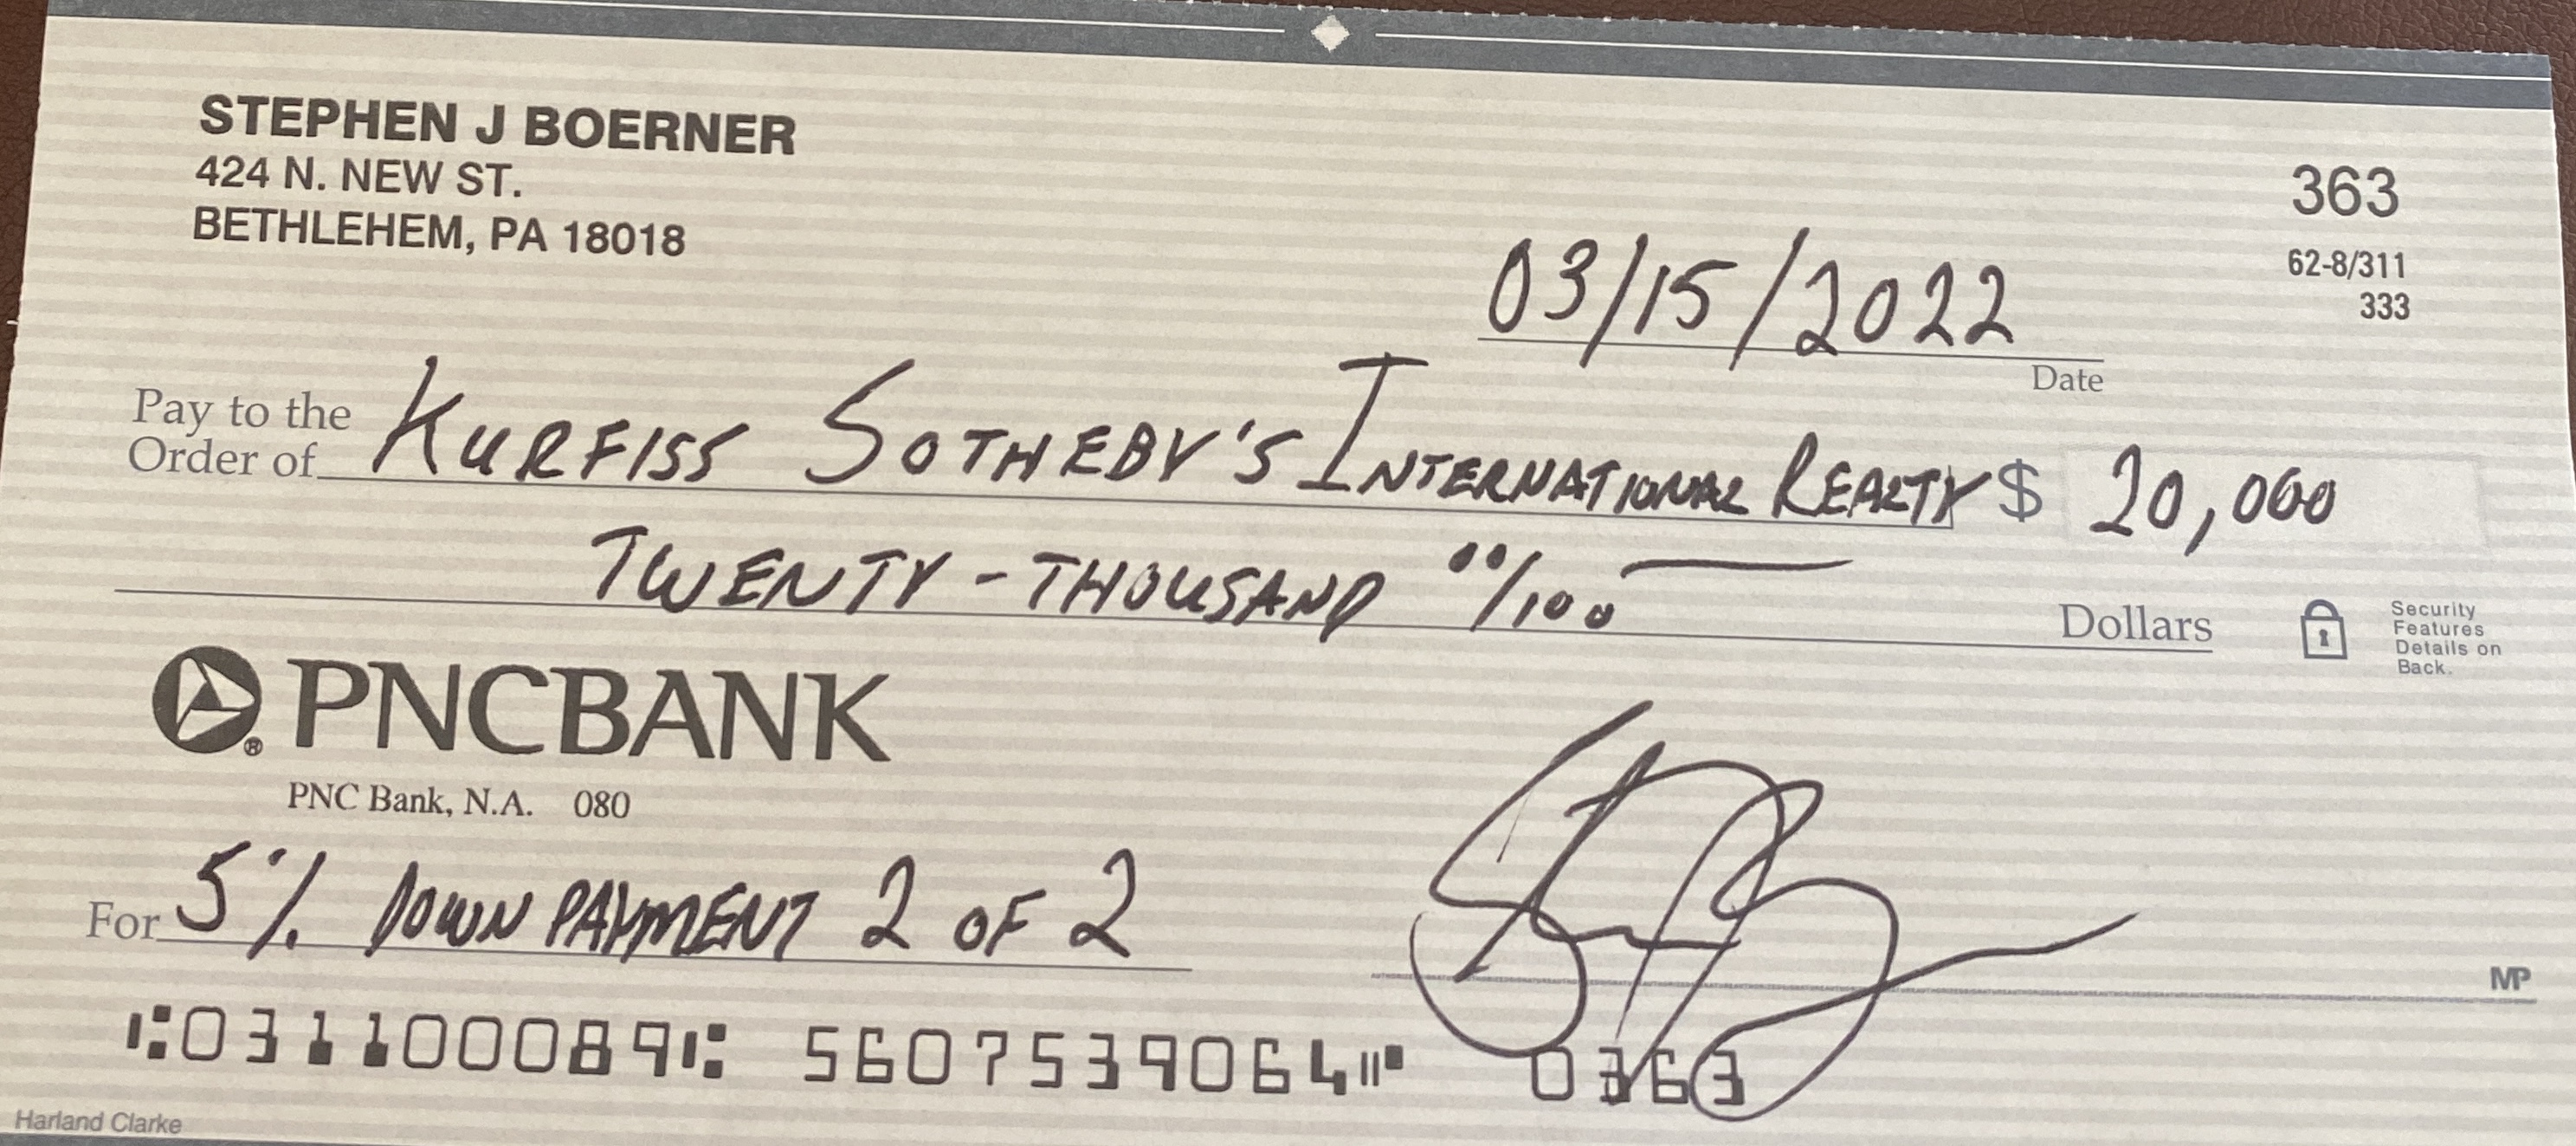 STEPHEN J BOERNER
424 N. NEW ST.
BETHLEHEM, PA 18018
363
62-8/311
333
03/15/2022
Date
Pay to the
Order of KURFISS SOTHEBY'S INTERNATIONAL REALTY $ 20,000
TWENTY-THOUSAND 00/100 Dollars
Security
Features
Details on
Back.
PNCBANK
PNC Bank, N.A. 080
For 5% DOWN PAYMENT 2 OF 2
MP
⑆031100089⑆ 5607539064⑈ 0363
Harland Clarke